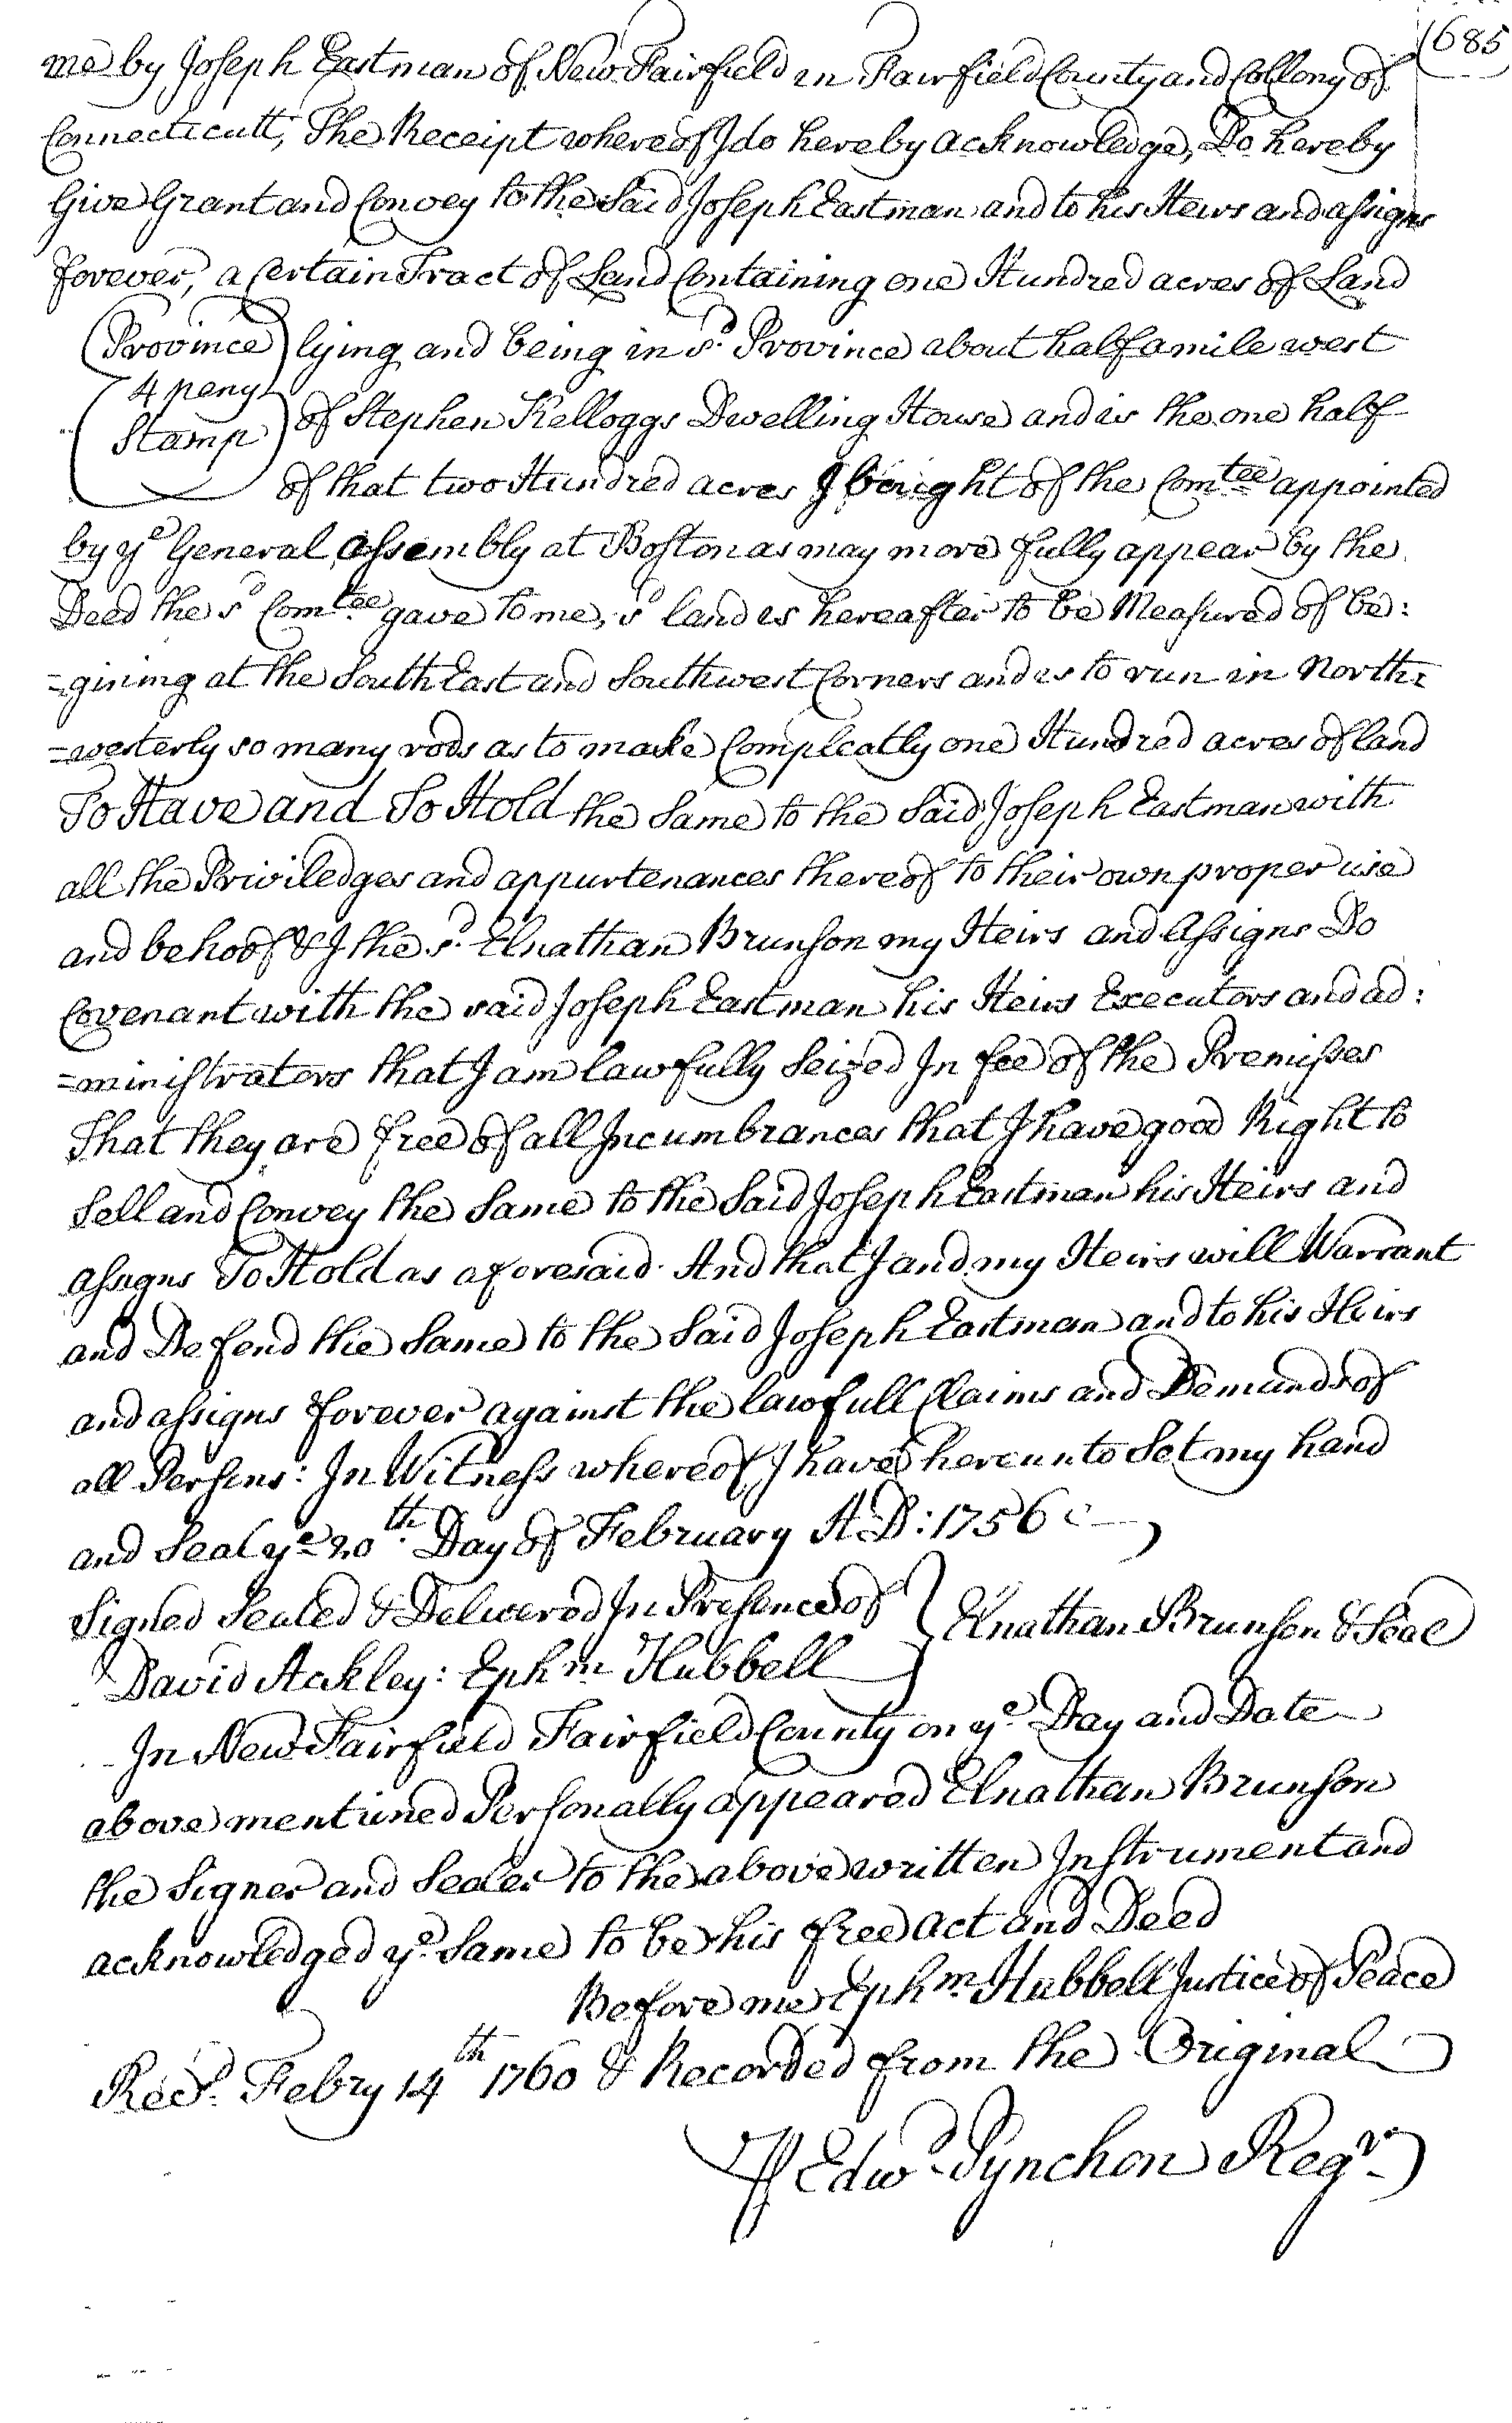 685
me by Joseph Eastman of New Fairfield in Fairfield County and Collony of
Connecticutt, The Receipt whereof I do hereby acknowledge, Do hereby
Give Grant and Convey to the Said Joseph Eastman and to his Heirs and assigns
forever, a Certain Tract of Land Containing one Hundred acres of Land
Province lying and being in sd. Province about half a mile west
4 peny
Stamp of Stephen Kelloggs Dwelling House and is the one half
of that two Hundred acres I bought of the Comtee appointed
by ye General Assembly at Boston as may more fully appear by the
Deed the sd Comtee gave to me, sd land is hereafter to be Measured of be:
=gining at the South East and Southwest Corners and is to run in North=
=westerly so many rods as to make Compleatly one Hundred acres of land
To Have and To Hold the Same to the Said Joseph Eastman with
all the Priviledges and appurtenances thereof to their own proper use
and behoof & I the sd. Elnathan Brunson my Heirs and Assigns Do
Covenant with the said Joseph Eastman his Heirs Executors and ad:
=ministrators that I am lawfully Seized In fee of the Premisses
That they are free of all Incumbrances that I have good Right to
Sell and Convey the Same to the Said Joseph Eastman his Heirs and
assigns To Hold as aforesaid. And that I and my Heirs will Warrant
and Defend the Same to the Said Joseph Eastman and to his Heirs
and assigns forever against the lawfull Claims and Demands of
all Persons: In Witness whereof I have hereunto Set my hand
and Seal ye 20th. Day of February A:D: 1756
Signed Sealed & Delivered In Presence of } Elnathan Brunson & Seal
David Ackley: Ephm Hubbell
In New Fairfield Fairfield County on ye. Day and Date
above mentioned Personally appeared Elnathan Brunson
the Signer and Sealer to the above written Instrument and
acknowledged ye. Same to be his free act and Deed
Before me Ephm. Hubbell Justice of Peace
Recd. Febry 14th 1760 & Recorded from the Original
⅌ Edwd Pynchon Regr.